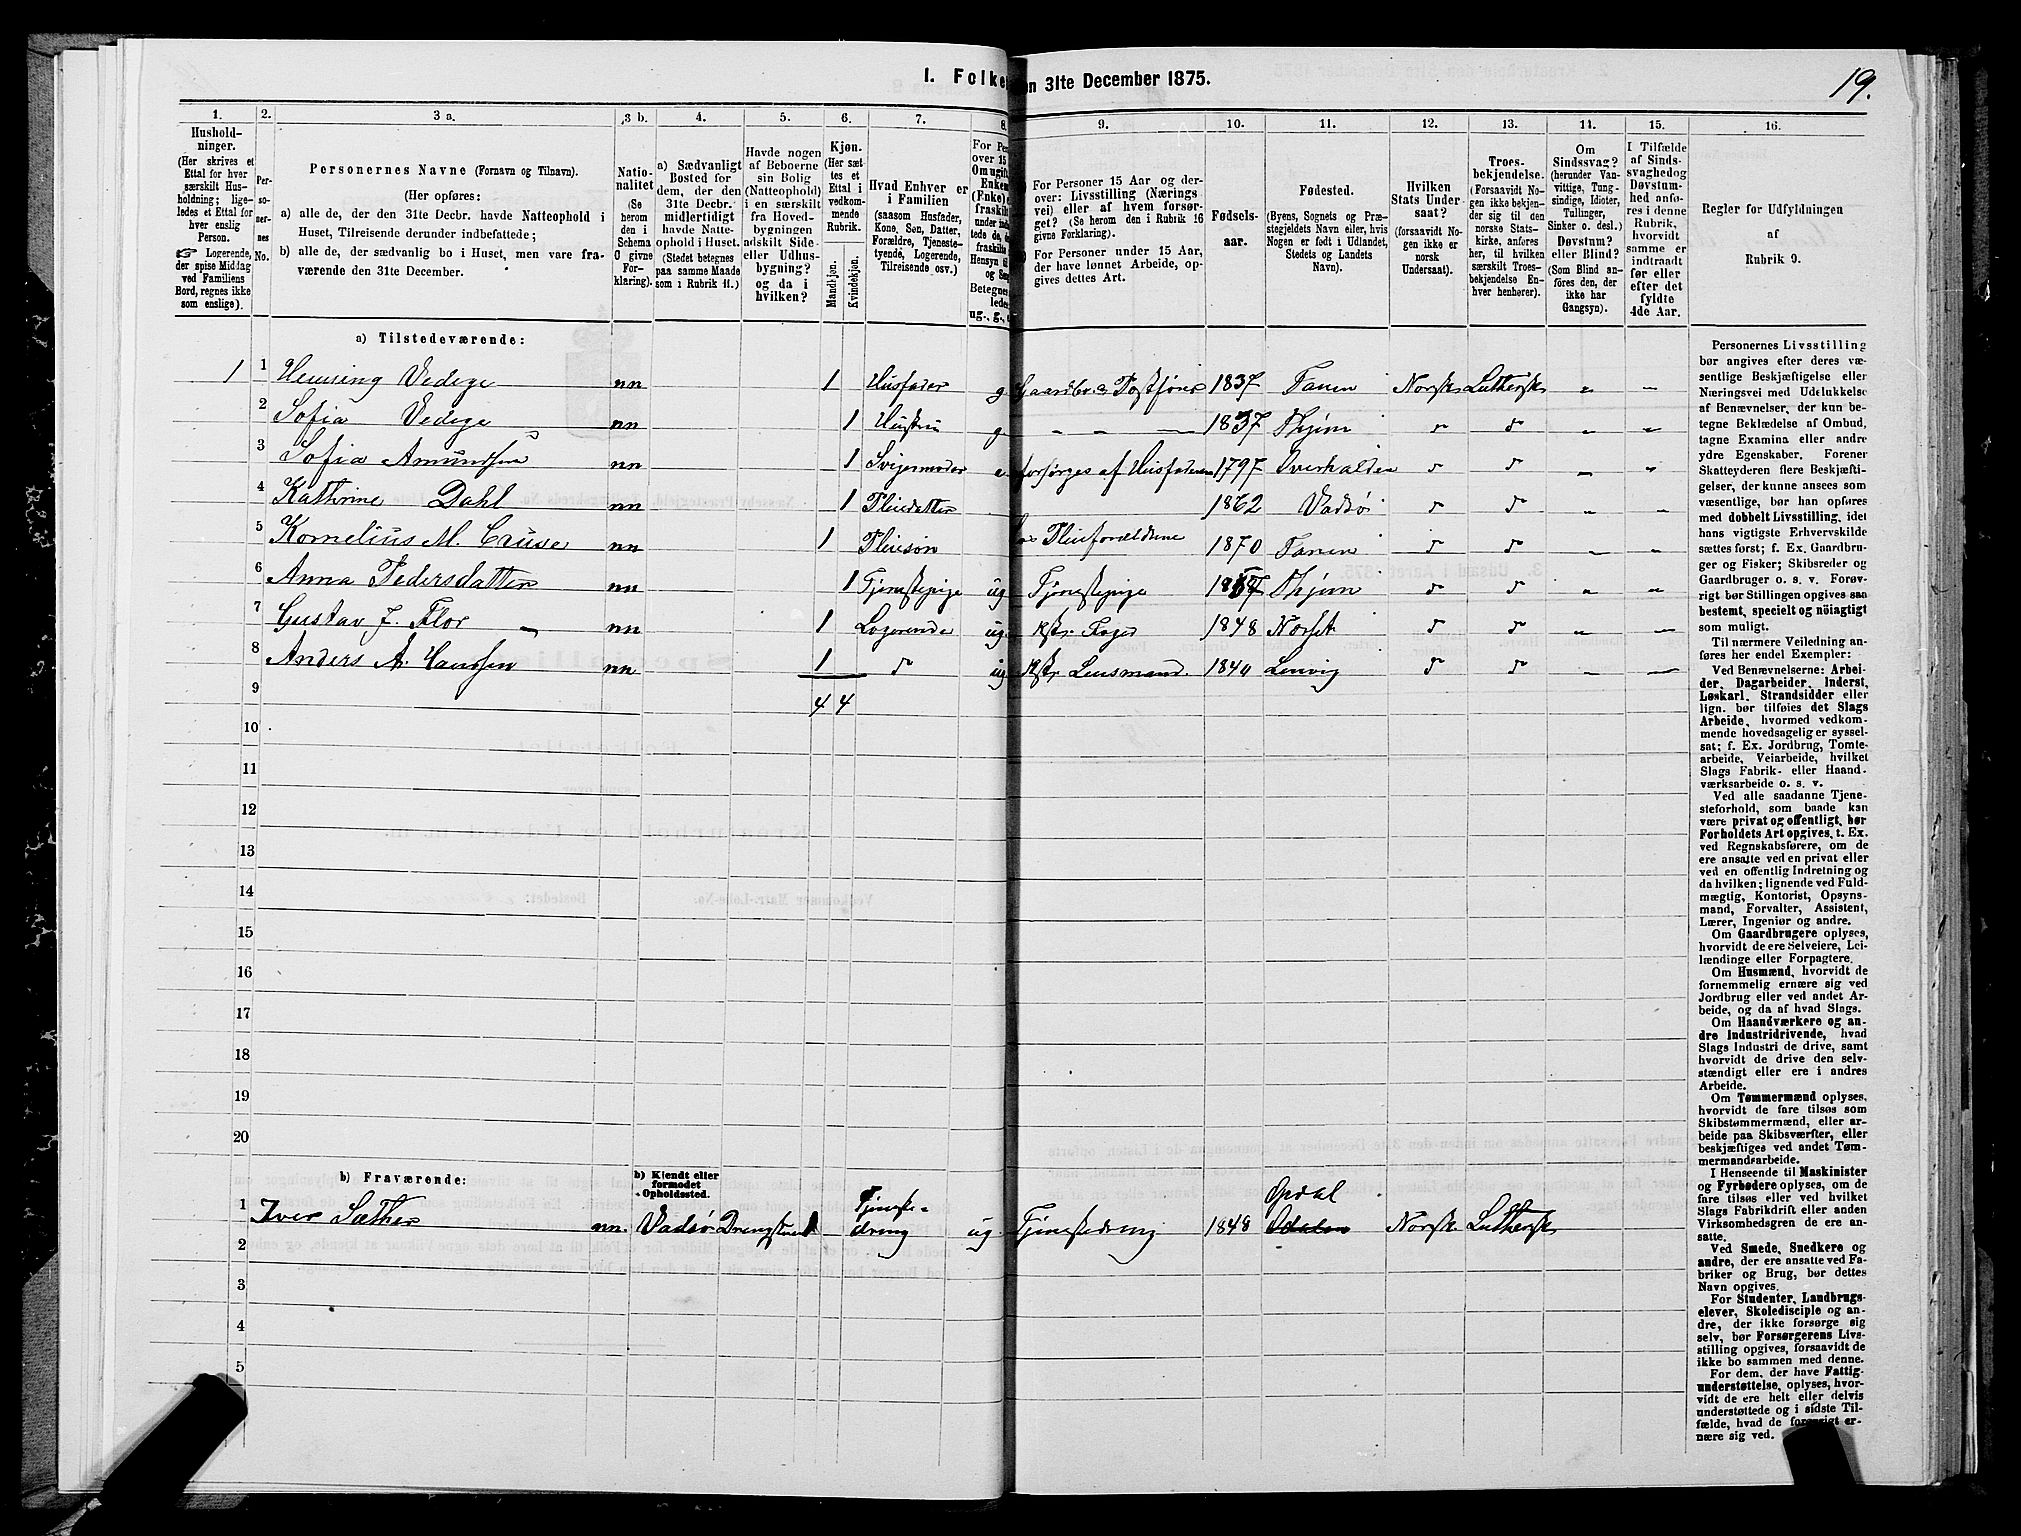 I. Folke
en 31te December 1875.
19.
1. 2. 3 a. 3 b. 4. 5. 6. 7. 8. 9. 10. 11. 12. 13. 14. 15. 16.
Hushold-
ninger.
(Her skrives et
Ettal for hver
særskilt Hus-
holdning; lige-
ledes et Ettal for
hver enslig
Person.
☞ Logerende,
der spise Middag
ved Familiens
Bord, regnes ikke
som enslige).
Per-
so-
ner-
nes
No.
Personernes Navne (Fornavn og Tilnavn).
(Her opføres:
a) alle de, der den 31te Decbr. havde Natteophold i
Huset, Tilreisende derunder indbefattede;
b) alle de, der sædvanlig bo i Huset, men vare fra-
værende den 31te December.
Natio-
nalitet
(Se
herom
den i
Schema
O givne
For-
klaring).
a) Sædvanligt
Bosted for
dem, der den
31te Decbr.
midlertidigt
havde Natte-
ophold i Huset.
(Stedet betegnes
paa samme Maade
som i Rubrik 11.)
Havde nogen
af Beboerne
sin Bolig
(Natteophold)
i en særskilt
fra Hoved-
bygningen
adskilt Side-
eller Udhus-
bygning?
og da i
hvilken?
Kjøn.
(Her sæt-
tes et
Ettal i
vedkom-
mende
Rubrik.
Mandkjøn.
Kvindekjøn.
Hvad Enhver er
i Familien
(saasom Husfader,
Kone, Søn, Datter,
Forældre, Tjeneste-
tyende, Logerende,
Tilreisende osv.)
For Pe
over 15
Om ugift
Enkem
(Enke)
fraskilt
Betegnes
ledes
ug., g.,
For Personer 15 Aar og der-
over: Livsstilling (Nærings-
vei) eller af hvem forsør-
get? (Se herom den i Rubrik 16
givne Forklaring).
For Personer under 15 Aar,
der have lønnet Arbeide, op-
gives dettes Art.
Fødsels-
aar.
Fødested.
(Byens, Sognets og Præ-
stegjeldets Navn eller, hvis
Nogen er født i Udlandet,
Stedets og Landets
Navn).
Hvilken
Stats Under-
saat?
(forsaavidt No-
gen ikke er
norsk
Undersaat).
Troes-
bekjendelse.
(Forsaavidt No-
gen ikke bekjen-
der sig til den
norske Stats-
kirke, anføres
her, til hvilken
særskilt Troes-
bekjendelse En-
hver henhører).
Om
Sindssvag?
(herunder Van-
vittige, Tung-
sindige, Idioter,
Tullinger,
Sinker o. desl.)
Døvstum?
eller Blind?
(Som Blind an-
føres den, der
ikke har
Gangsyn).
I Tilfælde
af Sinds-
svaghed og
Døvstum-
hed anfø-
res i denne
Rubrik,
hvorvidt
samme er
indtraadt
før eller
efter det
fyldte
4de Aar.
Regler for Udfyldningen
af
Rubrik 9.
a) Tilstedeværende:
1 1 Henning Vedege nn 1 Husfader g Gaardbr. & Postfører 1837 Tanen Norsk Luthersk
2 Sofia Vedege nn 1 Hustru g 1837
3 Sofia Amundsen nn 1 Svigermoder e forsørges af Husfaderen 1797 Overhalden
4 Kathrine Dahl nn 1 Pleiedatter 1862 Vadsø
5 Kornelius M. Cruse nn 1 Pleiesøn Pleieforældrene 1870 Tanen
6 Anna Pedersdatter nn 1 Tjenestepige ug Tjenestepige
7 Gustav J. Flor nn 1 Logerende ug Kst. Foged 1848
8 Anders A. Hanssen nn 1 ug Kst. Lensmand 1840 Lenvig
9 4 4
10
11
12
13
14
15
16
17
18
19
20
b) Fraværende:
b) Kjendt eller
formodet
Opholdssted.
1 Iver Sæther nn. Vadsø Tjeneste-
dreng ug Tjenestedreng 1848 Opdal Norsk Luthersk
2
3
4
5
Personernes Livsstilling
bør angives efter deres væ-
sentlige Beskjæftigelse eller
Næringsvei med Udelukkelse
af Benævnelser, der kun be-
tegne Beklædelse af Ombud,
tagne Examina eller andre
ydre Egenskaber. Forener
Skatteyderen flere Beskjæfti-
gelser, der kunne ansees som
væsentlige, bør han opføres
med dobbelt Livsstilling, idet
hans vigtigste Erhvervskilde
sættes først; f. Ex. Gaardbru-
ger og Fisker; Skibsreder og
Gaardbruger o. s. v. Forøv-
rigt bør Stillingen opgives saa
bestemt, specielt og nöiagtigt
som muligt.
Til nærmere Veiledning an-
føres her endel Exempler:
Ved Benævnelserne: Arbei-
der, Dagarbeider, Inderst,
Løskarl, Strandsidder eller
lign. bør tilføies det Slags
Arbeide, hvormed vedkom-
mende hovedsagelig er syssel-
sat; f. Ex. Jordbrug, Tomte-
arbeide, Veiarbeide, hvilket
Slags Fabrik- eller Haand-
værksarbeide o. s. v.
Ved alle saadanne Tjene-
steforhold, som baade kan
være privat og offentligt, bør
Forholdets Art opgives, t. Ex.
ved Regnskabsførere, om de
ere ansatte ved en privat eller
ved en offentlig Indretning og
da hvilken; lignende ved Fuld-
mægtig, Kontorist, Opsyns-
mand, Forvalter, Assistent,
Lærer, Ingeniør og andre.
Om Gaardbrugere oplyses,
hvorvidt de ere Selveiere, Lei-
lændinge eller Forpagtere.
Om Husmænd, hvorvidt de
fornemmelig ernære sig ved
Jordbrug eller ved andet Ar-
beide, og da af hvad Slags.
Om Haandværkere og an-
dre Industridrivende, hvad
Slags Industri de drive, samt
hvorvidt de drive den selv-
stændigt eller ere i andres
Arbeide.
Om Tømmermænd oplyses,
hvorvidt de fare tilsøs som
Skibstømmermænd, eller ar-
beide paa Skibsværfter, eller
beskjæftiges ved andet Tøm-
mermandsarbeide.
I Henseende til Maskinister
og Fyrbødere oplyses, om de
fare tilsøs eller ved hvilket
Slags Fabrikdrift eller anden
Virksomhedsgren de ere an-
satte.
Ved Smede, Snedkere og
andre, der ere ansatte ved Fa-
briker og Brug, bør dettes
Navn opgives.
For Studenter, Landbrugs-
elever, Skoledisciple og an-
dre, der ikke forsørge sig
selv, bør Forsørgerens Livs-
stilling opgives, forsaavidt de
ikke bo sammen med denne.
For dem, der have Fattig-
understøttelse, oplyses, hvor-
vidt de ere helt eller delvis
understøttede og i sidste Til-
fælde, hvad de forøvrigt er-
nære sig ved.